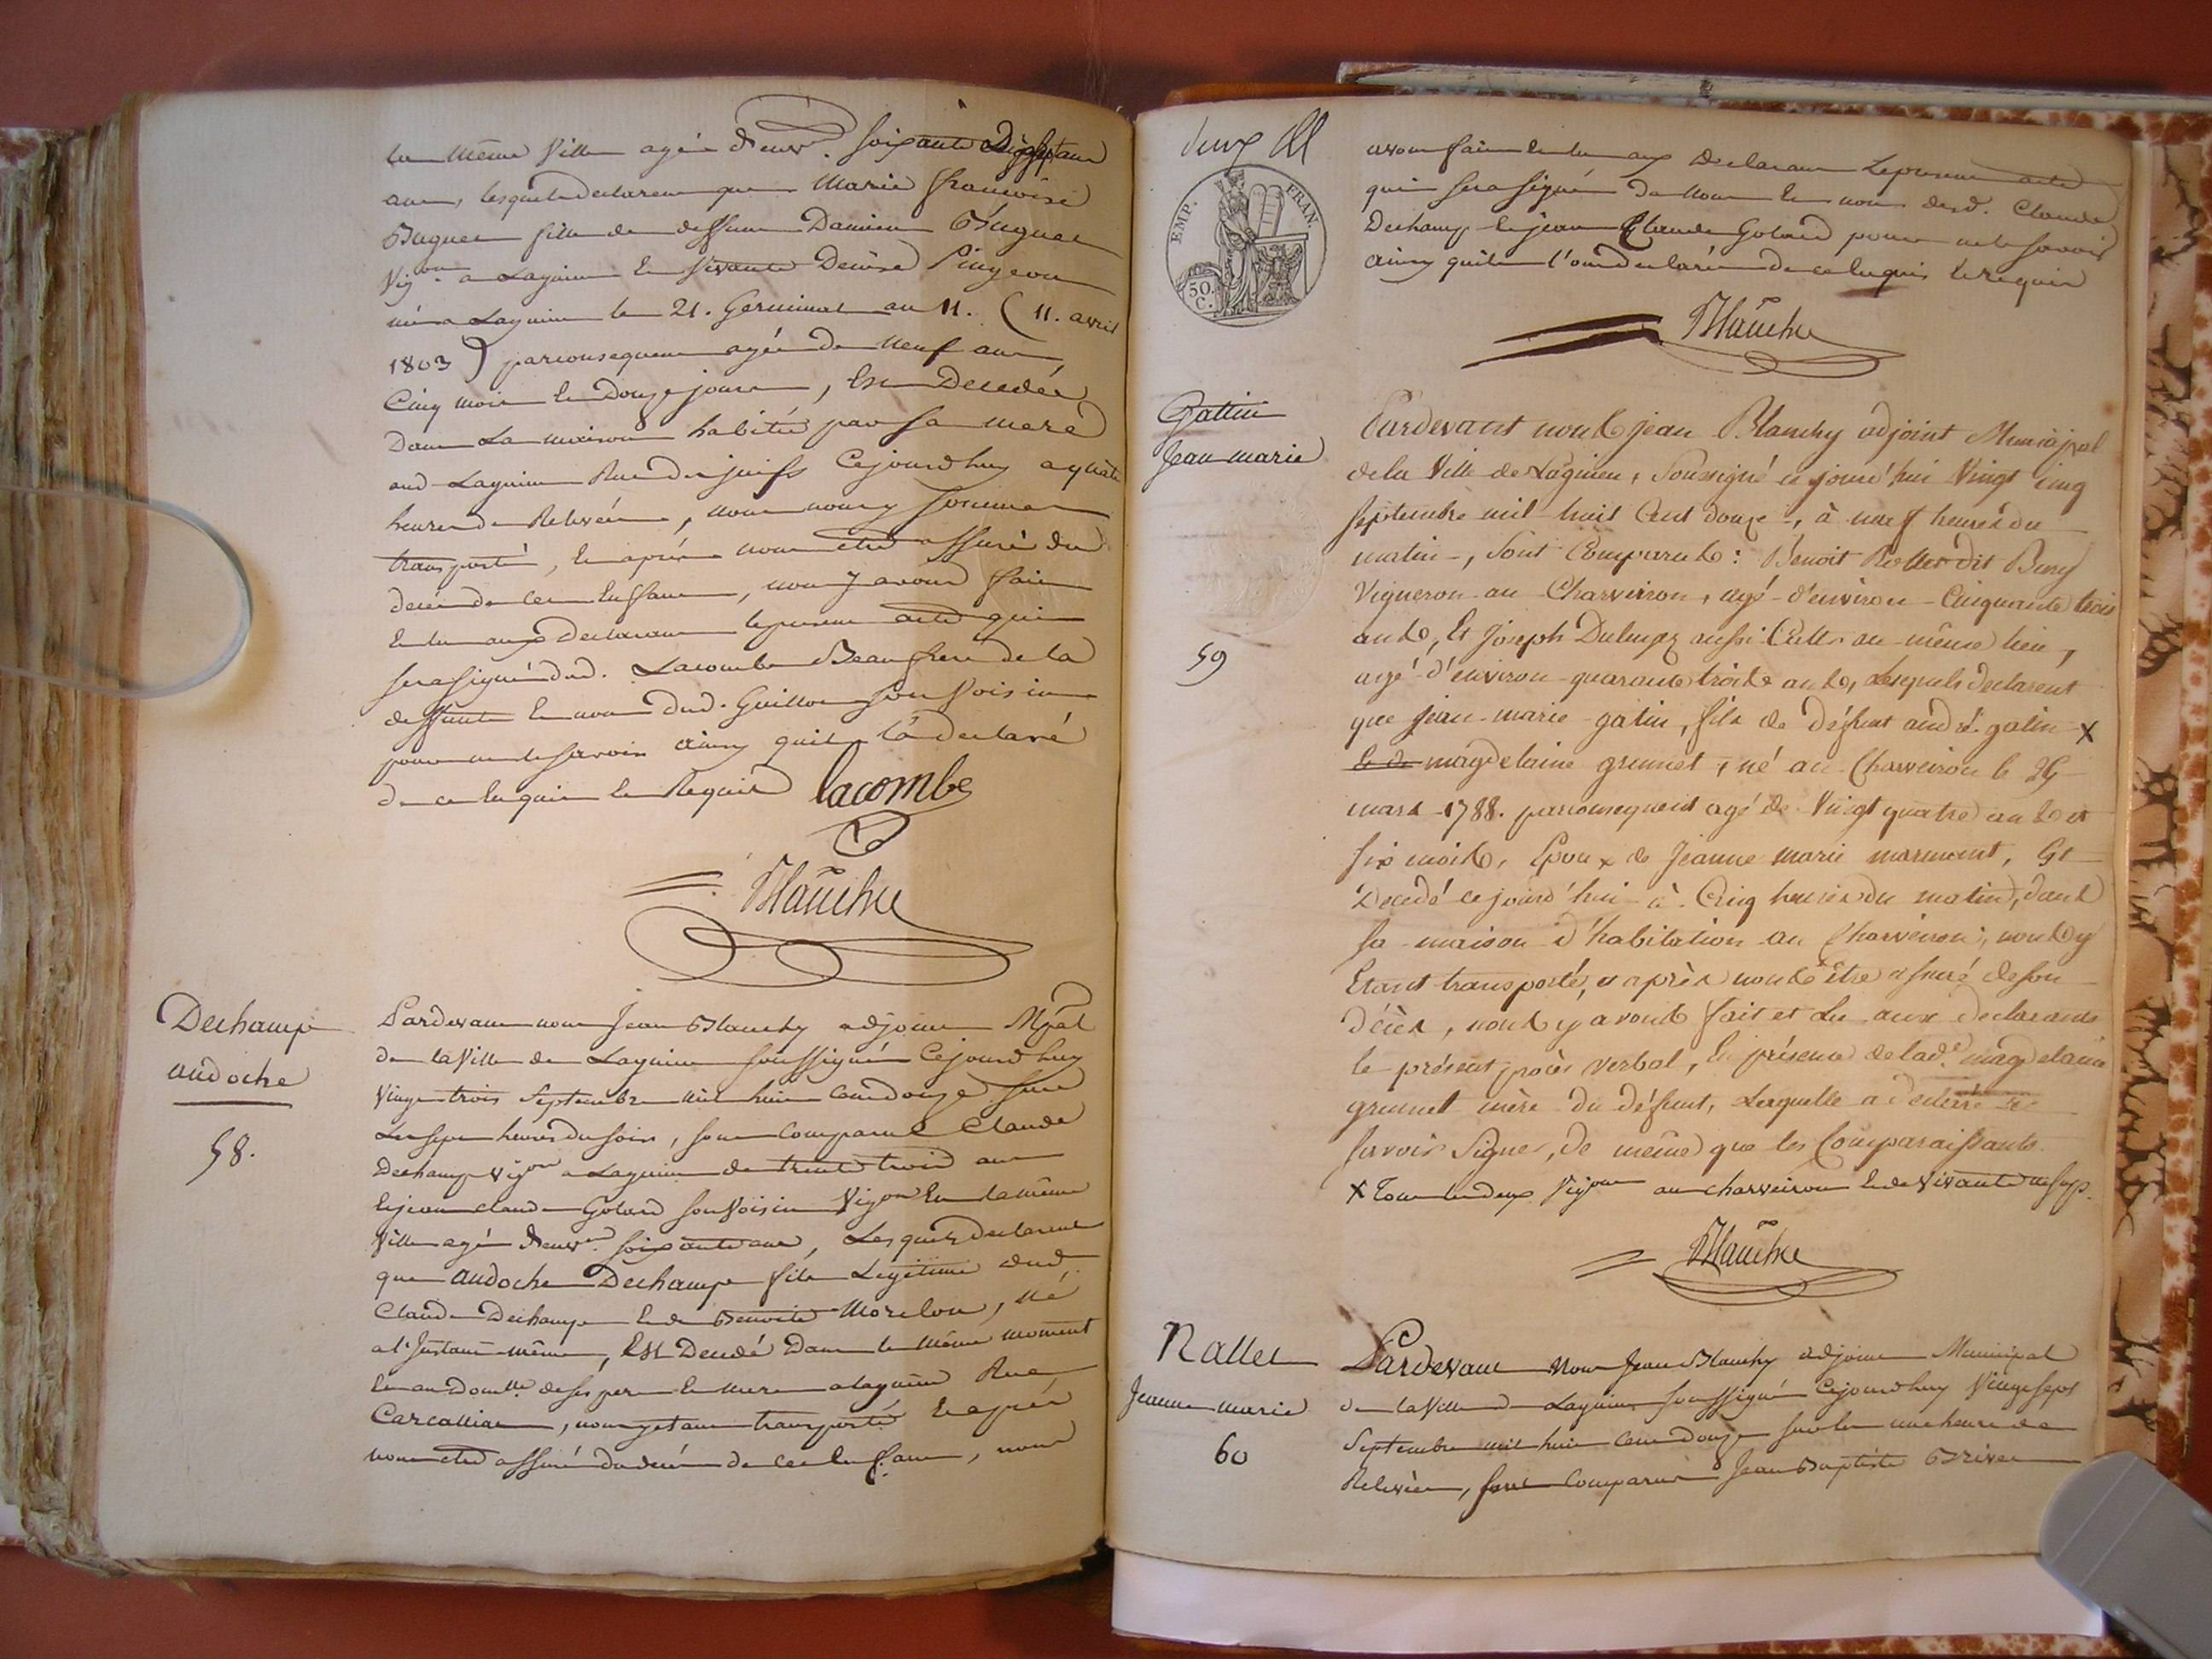 la même Ville agée d'env.on soixante Dix sept ans
ans, lesquels declarent que Marie françoise
Buguet fille de deffunt Damien Buguet
Vig.on a Lagnieu et vivante Denise Pingeon
née a Lagnieu le 21. Germinal an 11. (11. avril
1803) par consequent agée de neuf ans
Cinq mois et Douze jours, Est Decedée
Dans la maison habitée par sa mere
aud Lagnieu Rue des juifs Cejourdhuy a quatre
heures de Relevée, nous nous y sommes
transporté, et après nous etre assuré du
deces de cet Enfant, nous y avons fait
et lu aux declarants le present acte qui
sera signé dud. Lacombe Beaufrere de la
deffunte et non dud. Guillon son Voisin
pour ne le savoir ainsy quil l'a declaré
de ce enquis et Requis lacombe
Blanchy
Dechamp
andoche
58.
Pardevant nous Jean Blanchy adjoint Mpal
de la Ville de Lagnieu soussigné Cejourdhuy
Vingt trois Septembre mil huit cent douze sur
les sept heures du soir, sont comparus Claude
Dechamp vigon a Lagnieu de trente trois ans
et jean claude Golard son Voisin Vigon En la même
Ville agé d'env.on soixante ans, Lesquels declarent
que andoche Dechamp fils Legitime dud.
Claude Dechamp et de Benoite Morelon, né
a l'Instant même, Est Decedé Dans le même moment
et au Domlle de ses pere et mere a lagnieu Rue
Carcassian, nous y etant transporté et après
nous etre assuré du decés de cet enfant, nous
EMP. FRAN.
50.
C.
avons fait et lu aux Declarants le present acte
qui sera signé de nous et non desd. Claude
Dechamp et jean Claude Golard pour ne le savoir
ainsy quils l'ont declaré de ce enquis et requis
Blanchy
Gattin
Jean marie
59
Pardevant nous jean Blanchy adjoint Municipal
de la Ville de Lagnieu, Soussigné ce jourd'hui Vingt cinq
septembre mil huit Cent douze, à neuf heures du
matin, Sont Comparus: Benoit Rollet dit Buny
Vigneron au Charveiron, agé d'environ Cinquante trois
ans, Et Joseph aussi Cult.r au même lieu,
agé d'environ quarante trois ans, Lesquels declarent
que jean-marie gatin, fils de défunt andré gatin X
et de magdelaine grunet, né au Charveiron le 25
mars 1788. par consequent agé de Vingt quatre ans et
six mois, Epoux de Jeanne marie marmont, Est
Decedé ce jourd'hui à Cinq heures du matin, dans
sa maison d'habitation au Charveiron, nous y
Etant transporté, et après nous être assuré de son
décès, nous y avons fait et lu aux declarants
le présent procès verbal, En présence de lad.e magdelaine
grunet mère du défunt, Laquelle a declaré ne
savoir Signer, de même que les Comparaissants.
X Tous les deux Vigons au charveiron et de Vivante
Blanchy
Nallet
Jeanne marie
60
Pardevant Nous Jean Blanchy adjoint Municipal
de la Ville de Lagnieu soussigné Cejourdhuy Vingt sept
Septembre mil huit cent Douze sur les une heure de
Relevée, sont comparus Jean Baptiste Brivet